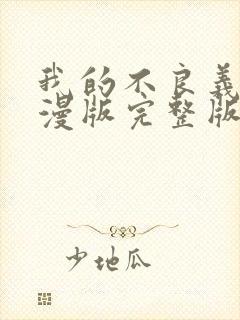 我的不良義
漫版完整版
少地瓜